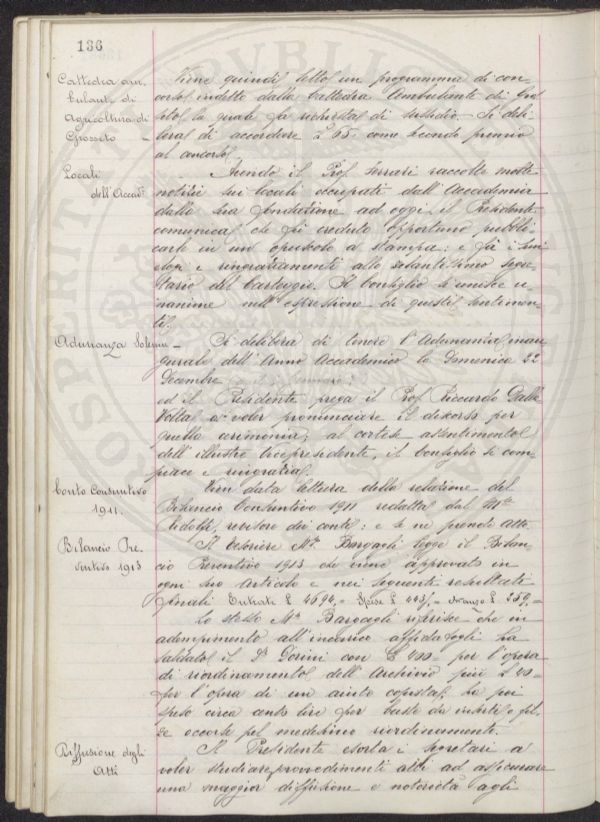 136
Cattedra am-
bulante di
Agricoltura di
Grosseto
Viene quindi letto un programma di con-
corso indetto dalla Cattedra Ambulante di Gros-
seto, la quale fa richiesta di sussidio. Si deli-
bera di accordare £ 65 come secondo premio
al concorso.
Locali
dell'Accad.
Avendo il Prof. Ferrari raccolte molte
notizie sui locali occupati dall'Accademia
dalla sua fondazione ad oggi, il Presidente
comunica che fu creduto opportuno pubbli-
carle in un opuscolo a stampa: e fa i suoi
elogi e ringraziamenti allo zelantissimo Segre-
tario del Carteggio. Il Consiglio si unisce u-
nanime nell'espressione di questi sentimen-
ti.
Adunanza Solenne
Si delibera di tenere l'Adunanza inau-
gurale dell'Anno Accademico la Domenica 22
Decembre
ed il Presidente prega il Prof. Riccardo Dalla
Volta a voler pronunciare il discorso per
quella cerimonia; al cortese assentimento
dell'illustre Vicepresidente, il Consiglio si com-
piace e ringrazia.
Conto Consuntivo
1911.
Vien data lettura della relazione del
Bilancio Consuntivo 1911 redatta dal M.se
Ridolfi, revisore dei conti: e se ne prende atto.
Bilancio Pre-
ventivo 1913
Il tesoriere M.se Bargagli legge il Bilan-
cio Preventivo 1913 che viene approvato in
ogni suo articolo e nei seguenti resultati
finali Entrate £ 4694,= Spese £ Avanzo £ 259,=
Lo stesso M.se Bargagli riferisce che in
adempimento all'incarico affidatogli ha
saldato il Sr. Dorini con £ 400= per l'opera
di riordinamento dell'Archivio più £ 40=
per l'opera di un aiuto copista. Ha poi
speso circa cento lire per buste da inserti e fil-
ze occorse pel medesimo riordinamento.
Diffusione degli
Atti
Il Presidente esorta i Segretari a
voler studiare provvedimenti atti ad assicurare
una maggior diffusione e notorietà agli